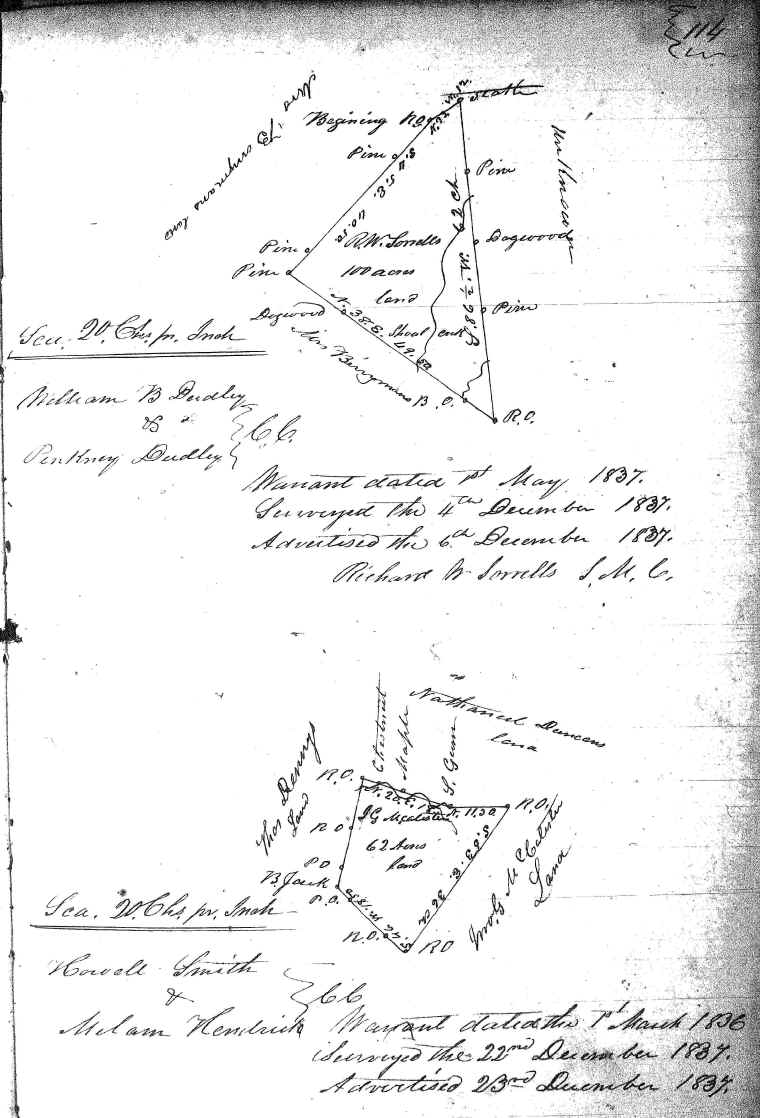 114
Begining R.O.
N. 72
Pine
Pine
Unknown
S. 11 S. E. 40.50
S. 86 ½ W. 62 Ch
R. W. Sorrells
100 acres
land
Dogwood
Pine
Pine
Dogwood
Pine
N. 38. E. 49.50
Shoal creek
Mrs Berrymans
B. O.
R.O.
Sca. 20 Chs. pr. Inch
William B Dudley
&
Pinkney Dudley
C. C.
Warrant dated 1st May 1837.
Surveyed the 4th December 1837.
Advertised the 6th December 1837.
Richard W Sorrells S. M. C.
Nathaniel Duncans
land
Chestnut
Maple
S. Gum
Thos Dennys
Land
R.O.
N. 20. E.
N. 11.50
R.O.
J G Mcalister
62 Acres
land
R O
P O
B. Jack
P. O.
S. 63. E. 36 Ch
Jno. G McAlister
Land
R.O.
R O
Sca. 20. Chs. pr. Inch
Howell Smith
&
Milam Hendrick
C C
Warrant dated the 1st March 1836
Surveyed the 22nd December 1837.
Advertised 23rd December 1837.